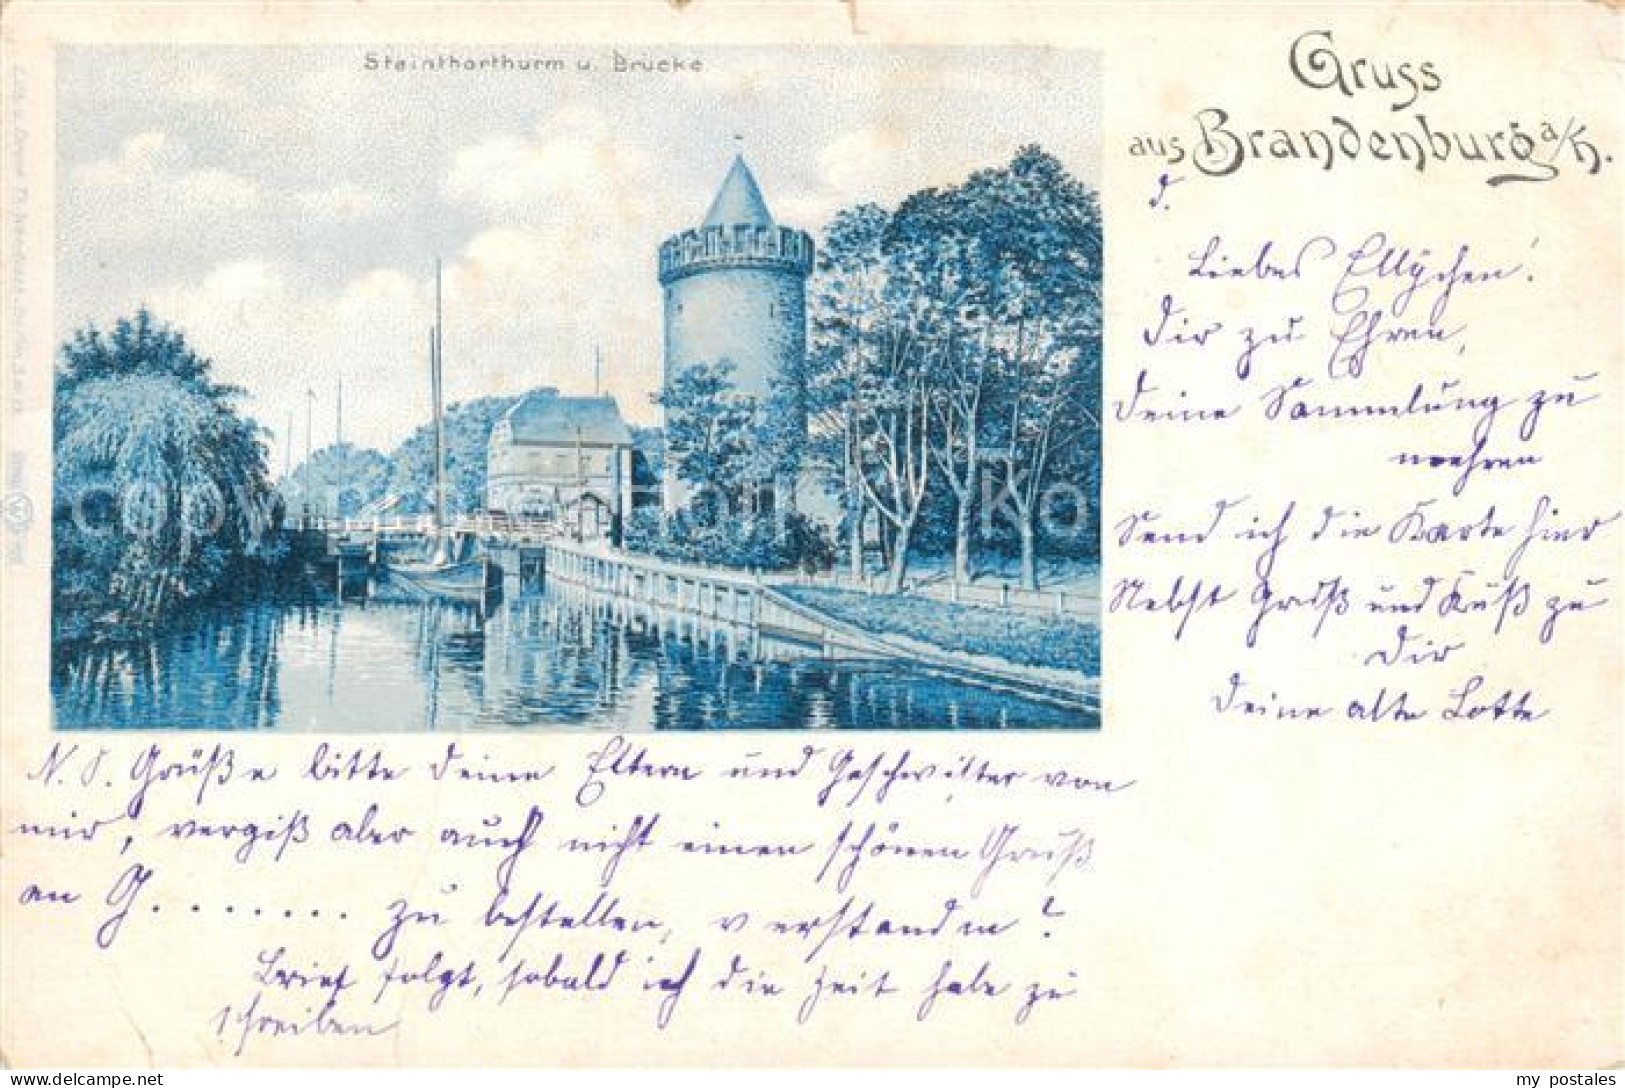 Steinthorthurm u. Brücke
Gruss
aus Brandenburg a/H.
d.
Liebes Ellÿchen!
Dir zu Ehren,
Deine Sammlung zu
mehren
Send ich die Karte hier
Nebst Gruß und Kuß zu
Dir
Deine alte Lotte
N. S. Grüße bitte Deine Eltern und Geschwister von
mir, vergiß aber auch nicht einen schönen Gruß
an G........ zu bestellen, verstanden?
Brief folgt, sobald ich die Zeit habe zu
schreiben
my postales